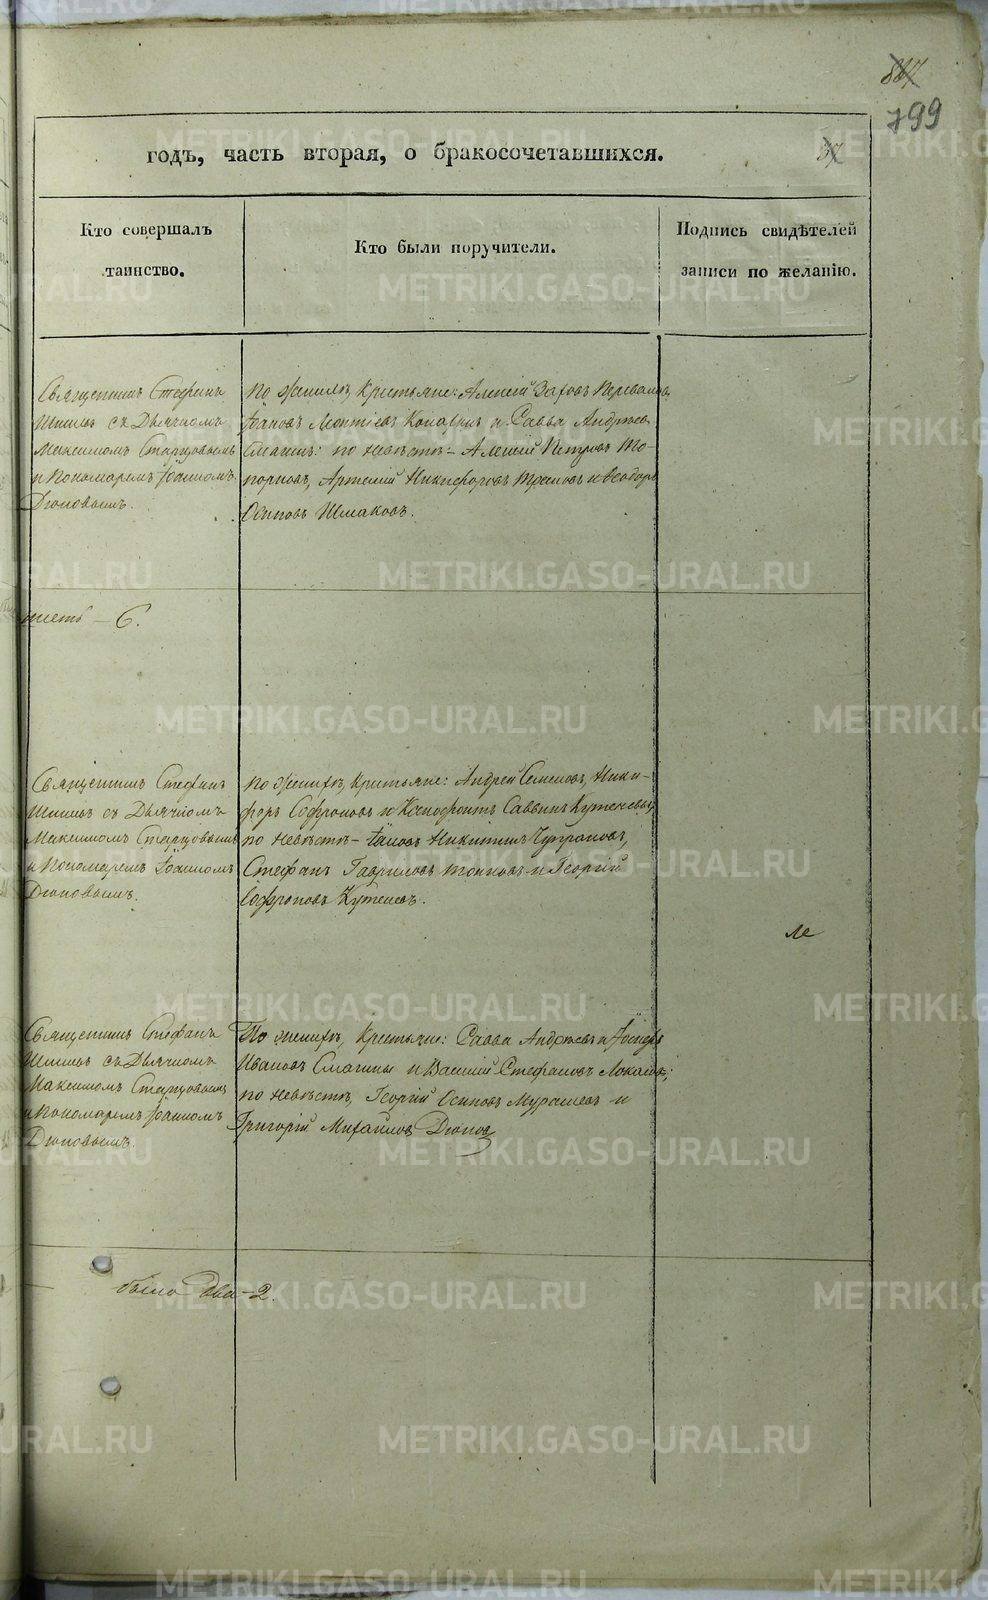 799
годъ, часть вторая, о бракосочетавшихся.
37
Кто совершалъ
таинство.
Кто были поручители.
Подпись свидѣтелей
записи по желанію.
Священникъ Стефанъ
Шишевъ съ Дьячкомъ
Максимомъ Старцовымъ
и Пономаремъ Іоанномъ
Дюповымъ.
По женихѣ, Крестьяне: Алексій
Іоаннъ Леонтіевъ и Савва Андреевъ
Смагинъ: по невѣстѣ – Алексій Петровъ То-
порковъ, Артемій Никифоровъ и Ѳеодоръ
Осиповъ Шмаковъ.
шесть – 6.
Священникъ Стефанъ
Шишевъ съ Дьячкомъ
Максимомъ Старцовымъ
и Пономаремъ Іоанномъ
Дюповымъ.
По женихѣ, Крестьяне: Андрей Семеновъ, Ники-
форъ Софроновъ и Ксенофонтъ Саввинъ Кутеневы;
по невѣстѣ – Никитинъ Чупраковъ,
Стефанъ Гавриловъ и Георгій
Софроновъ Кутеневъ.
Священникъ Стефанъ
Шишевъ съ Дьячкомъ
Максимомъ Старцовымъ
и Пономаремъ Іоанномъ
Дюповымъ.
По женихѣ, Крестьяне: Савва Андреевъ и Іосифъ
Ивановъ Смагины и Василій Стефановъ
по невѣстѣ, Георгій Осиповъ Мурашевъ и
Григорій Михайловъ Дюповъ
было два – 2.
METRIKI.GASO-URAL.RU